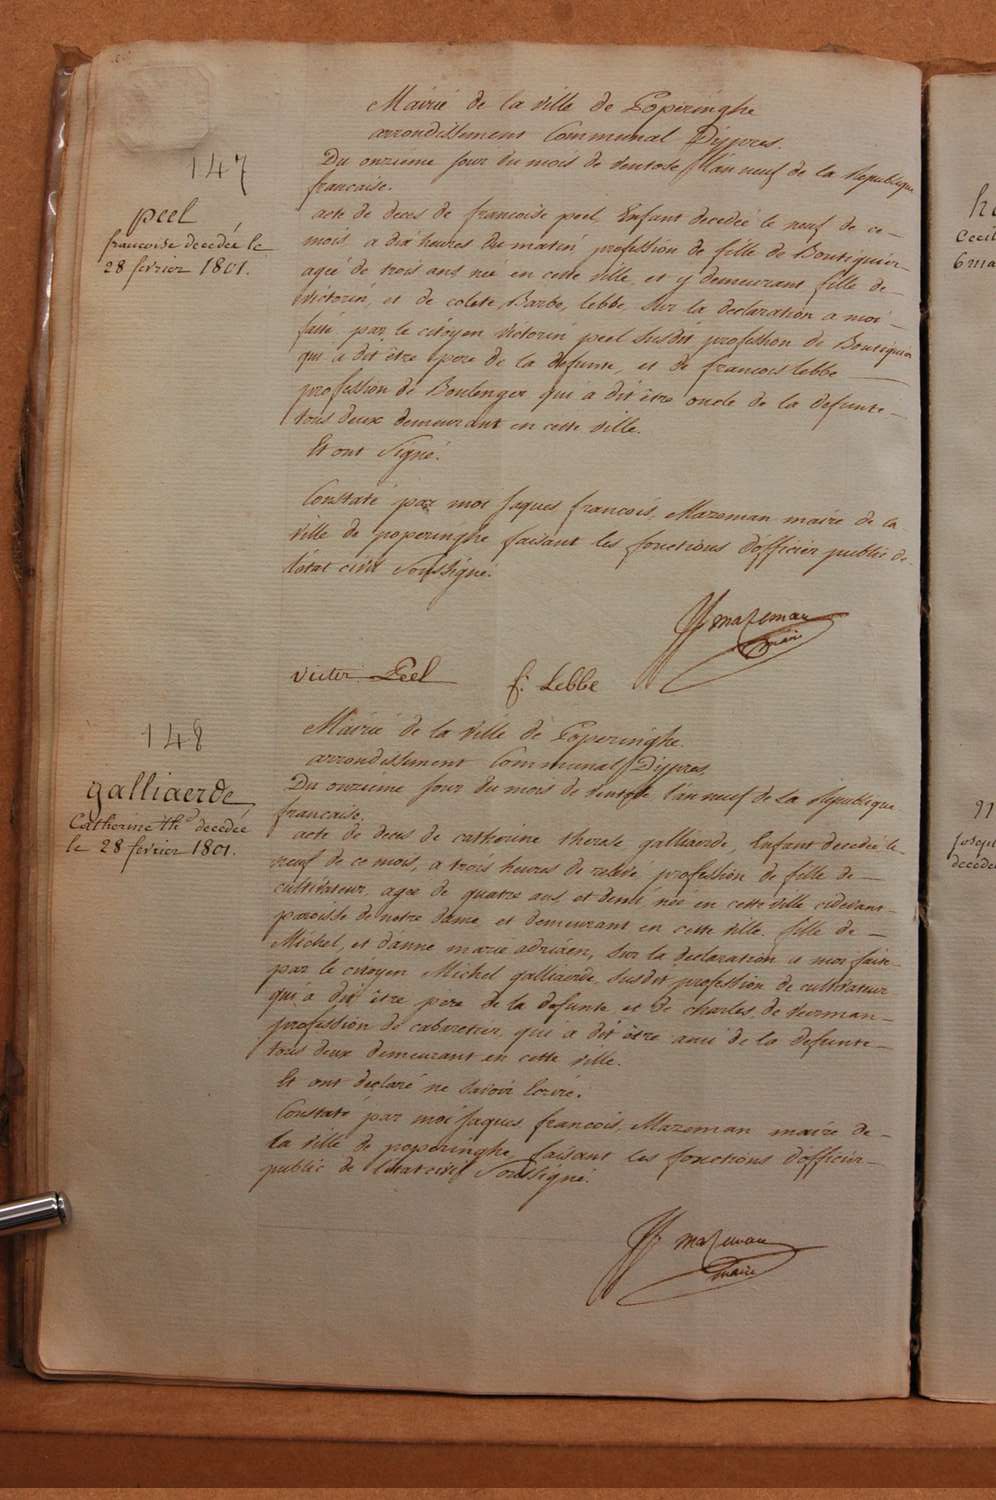 147
peel
francoise decedée le
28 fevrier 1801.
Mairie de la ville de Poperinghe
arrondissement Communal D'ypres.
Du onzieme jour du mois de ventose l'an neuf de la Republique
francaise.
acte de deces de francoise peel Enfant decedée le neuf de ce
mois a dix heures du matin profession de fille de Boutiquier
ageé de trois ans neé en cette ville, et y demeurant fille de
victorin, et de colete, Barbe, lebbe, sur la declaration a moi
faite par le citoyen victorin peel susdit profession de Boutiquier
qui a dit être pere de la defunte, et de francois lebbe
profession de Boulenger qui a dit être oncle de la defunte
tous deux demeurant en cette ville.
Et ont signé.
Constaté par moi Jaques francois, Mazeman maire de la
ville de poperinghe faisant les fonctions d'officier public de
l'état civil soussigné.
JF mazeman
maire
victor Peel
f: Lebbe
148
galliaerde
Catherine th.e decedée
le 28 fevrier 1801.
Mairie de la ville de Poperinghe
arrondissement Communal D'ypres.
Du onzieme jour du mois de ventose l'an neuf de La Republique
francaise.
acte de deces de catherine therese galliaerde, Enfant decedée le
neuf de ce mois, a trois heures de relevé profession de fille de
cultivateur, ageé de quatre ans et demi neé en cette ville cidevant
paroisse de notre dame et demeurant en cette ville. fille de
Michel, et d'anne marie adriaen, sur la declaration a moi faite
par le citoyen Michel galliaerde, susdit profession de cultivateur
qui a dit être pere de la defunte et de charles de veerman
profession de cabaretier, qui a dit être ami de la defunte
tous deux demeurant en cette ville.
Et ont declaré ne savoir Ecrire.
Constaté par moi Jaques francois, Mazeman maire de
la ville de poperinghe faisant les fonctions d'officier
public de l'etat civil soussigné.
JF mazeman
maire
Cecil
6 ma
Joseph
decede